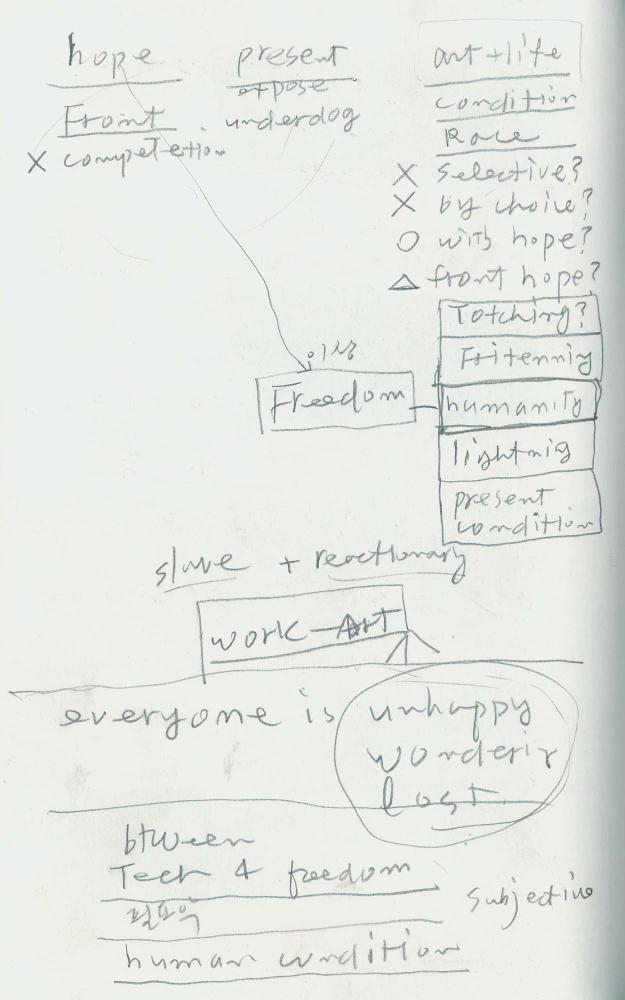 hope
Front
X competetion
present
expose
underdog
art + life
condition
Race
X selective?
X by choice?
O with hope?
△ front hope?
Totching?
Fritenniy
humanity
lightnig
present
condition
Freedom
slave + reactionary
work - Art
everyone is unhappy
wonderir
lost
btween
Tech & freedom
human condition
Subjective